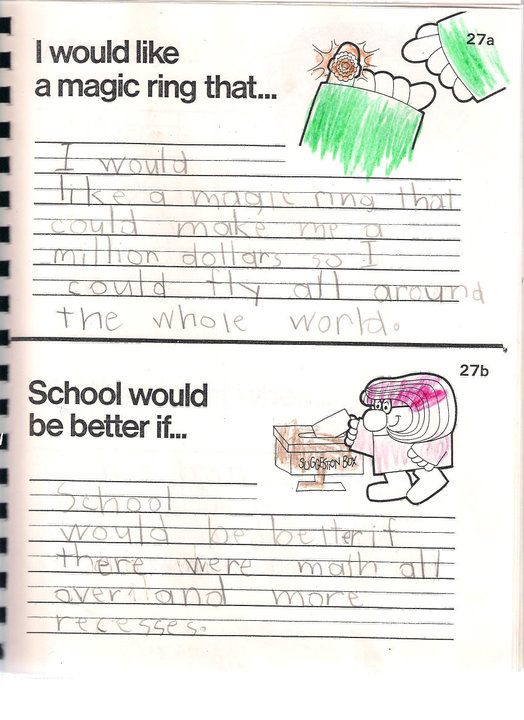 I would like
a magic ring that...
27a
I would
like a magic ring that
could make me a
million dollars so I
could fly all around
the whole world.
27b
School would
be better if...
SUGGESTION BOX
School
would be better if
there were math all
over and more
recesses.